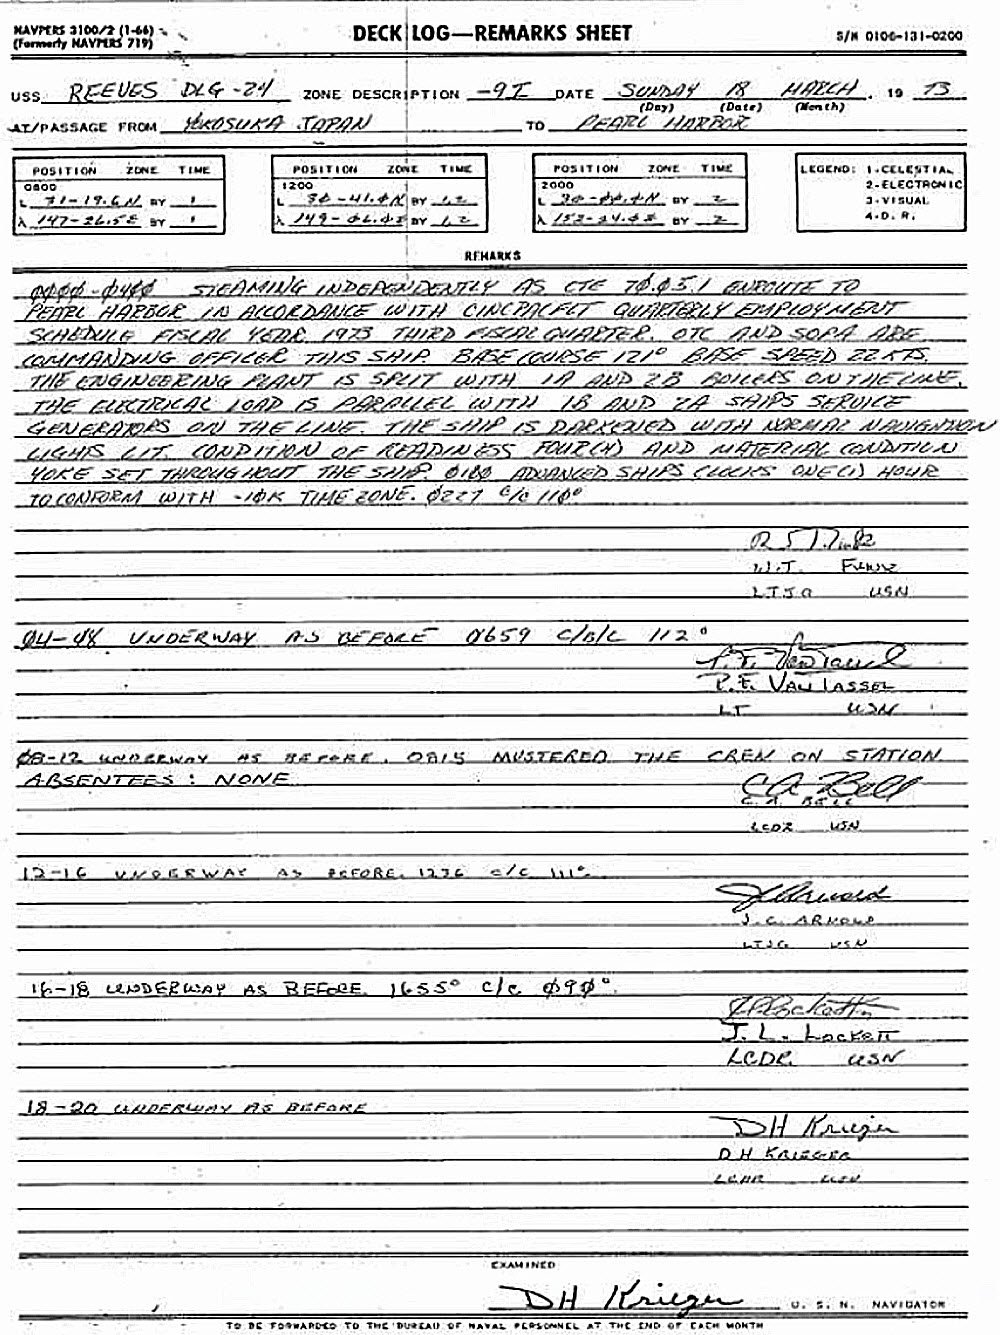 NAVPERS 3100/2 (1-66)
(Formerly NAVPERS 719)
DECK LOG—REMARKS SHEET
S/N 0106-131-0200
USS REEVES DLG-24 ZONE DESCRIPTION -9I DATE SUNDAY 18 MARCH, 19 73
(Day) (Date) (Month)
AT/PASSAGE FROM YOKOSUKA JAPAN TO PEARL HARBOR
POSITION ZONE TIME
0800
L 31-19.6N BY 1
λ 147-26.5E BY 1
POSITION ZONE TIME
1200
L 30-41.0N BY 1,2
λ 149-06.0E BY 1,2
POSITION ZONE TIME
2000
L 30-00.0N BY 2
λ 152-24.0E BY 2
LEGEND: 1-CELESTIAL
2-ELECTRONIC
3-VISUAL
4-D. R.
REMARKS
0000-0400 STEAMING INDEPENDENTLY AS CTE 70.05.1 ENROUTE TO
PEARL HARBOR IN ACCORDANCE WITH CINCPACFLT QUARTERLY EMPLOYMENT
SCHEDULE FISCAL YEAR 1973 THIRD FISCAL QUARTER. OTC AND SOPA ARE
COMMANDING OFFICER THIS SHIP. BASE COURSE 121° BASE SPEED 22 KTS.
THE ENGINEERING PLANT IS SPLIT WITH 1A AND 2B BOILERS ON THE LINE.
THE ELECTRICAL LOAD IS PARALLEL WITH 1B AND 2A SHIPS SERVICE
GENERATORS ON THE LINE. THE SHIP IS DARKENED WITH NORMAL NAVIGATION
LIGHTS LIT. CONDITION OF READINESS FOUR(4) AND MATERIAL CONDITION
YOKE SET THROUGHOUT THE SHIP. 0100 ADVANCED SHIPS CLOCKS ONE(1) HOUR
TO CONFORM WITH -10K TIME ZONE. 0227 C/C 110°
LTJG USN
04-08 UNDERWAY AS BEFORE 0659 C/B/C 112°
P. E. VAN TASSEL
P.E. VAN TASSEL
LT USN
08-12 UNDERWAY AS BEFORE. 0815 MUSTERED THE CREW ON STATION
ABSENTEES: NONE
CA Bell
C. A. BELL
LCDR USN
12-16 UNDERWAY AS BEFORE. 1236 C/C 111°
JC Arnold
J. C. ARNOLD
LTJG USN
16-18 UNDERWAY AS BEFORE. 1655° C/C 090°.
JL Lockett
J. L. LOCKETT
LCDR USN
18-20 UNDERWAY AS BEFORE
DH Krieger
D H KRIEGER
LCDR USN
EXAMINED
DH Krieger U. S. N. NAVIGATOR
TO BE FORWARDED TO THE BUREAU OF NAVAL PERSONNEL AT THE END OF EACH MONTH